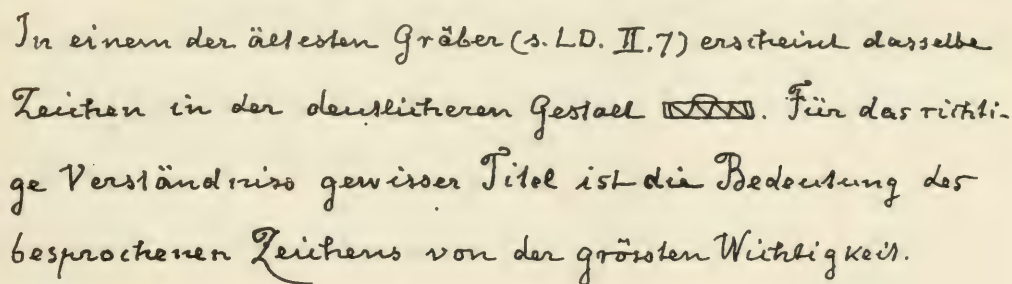 In einem der ältesten Gräber (s. LD. II. 7) erscheint dasselbe
Zeichen in der deutlicheren Gestalt . Für das richti-
ge Verständniss gewisser Titel ist die Bedeutung des
besprochenen Zeichens von der grössten Wichtigkeit.